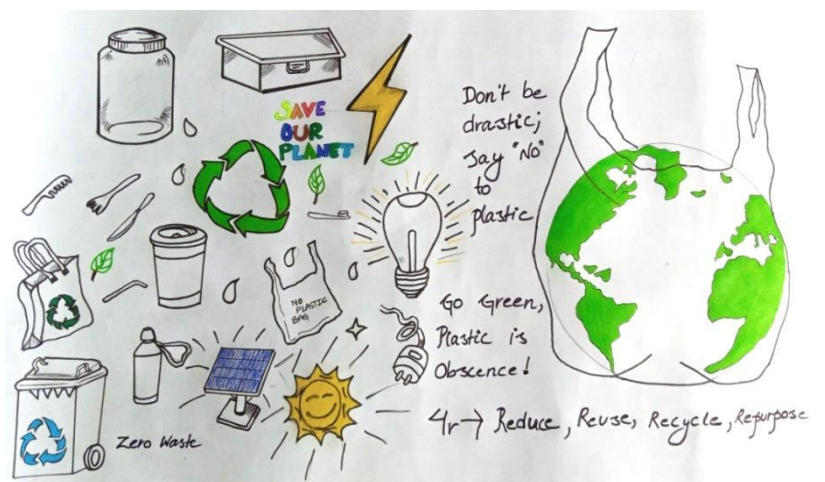 SAVE
OUR
PLANET
Don't be
drastic;
Say "NO"
to
plastic
NO
PLASTIC
BAG
Go Green,
Plastic is
Obscence!
Zero Waste
4r → Reduce, Reuse, Recycle, Repurpose